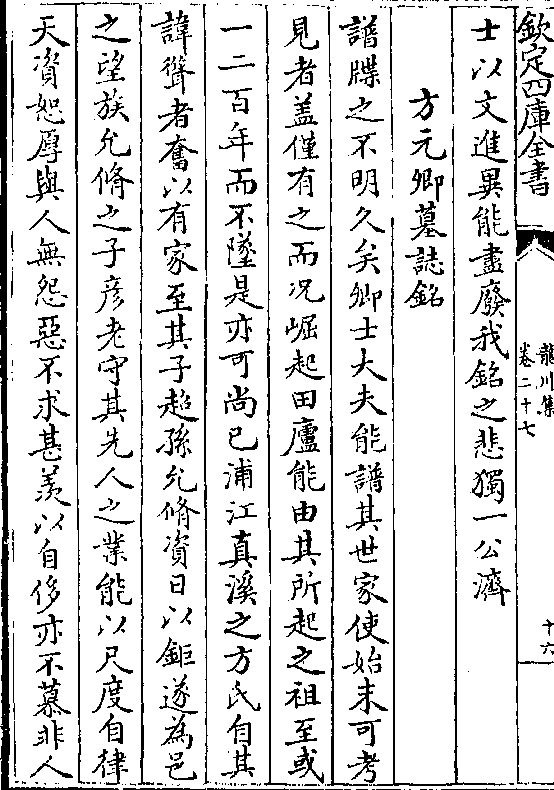 欽定四庫全書
龍川集
卷二十七
十六
士以文進異能盡廢我銘之悲獨一公濟
方元卿墓誌銘
譜牒之不明久矣卿士大夫能譜其世家使始末可考
見者盖僅有之而况崛起田廬能由其所起之祖至或
一二百年而不墜是亦可尚已浦江真溪之方氏自其
諱聳者奮以有家至其子超孫允脩資日以鉅遂為邑
之望族允脩之子彦老守其先人之業能以尺度自律
天資恕厚與人無怨惡不求甚羡以自侈亦不慕非人